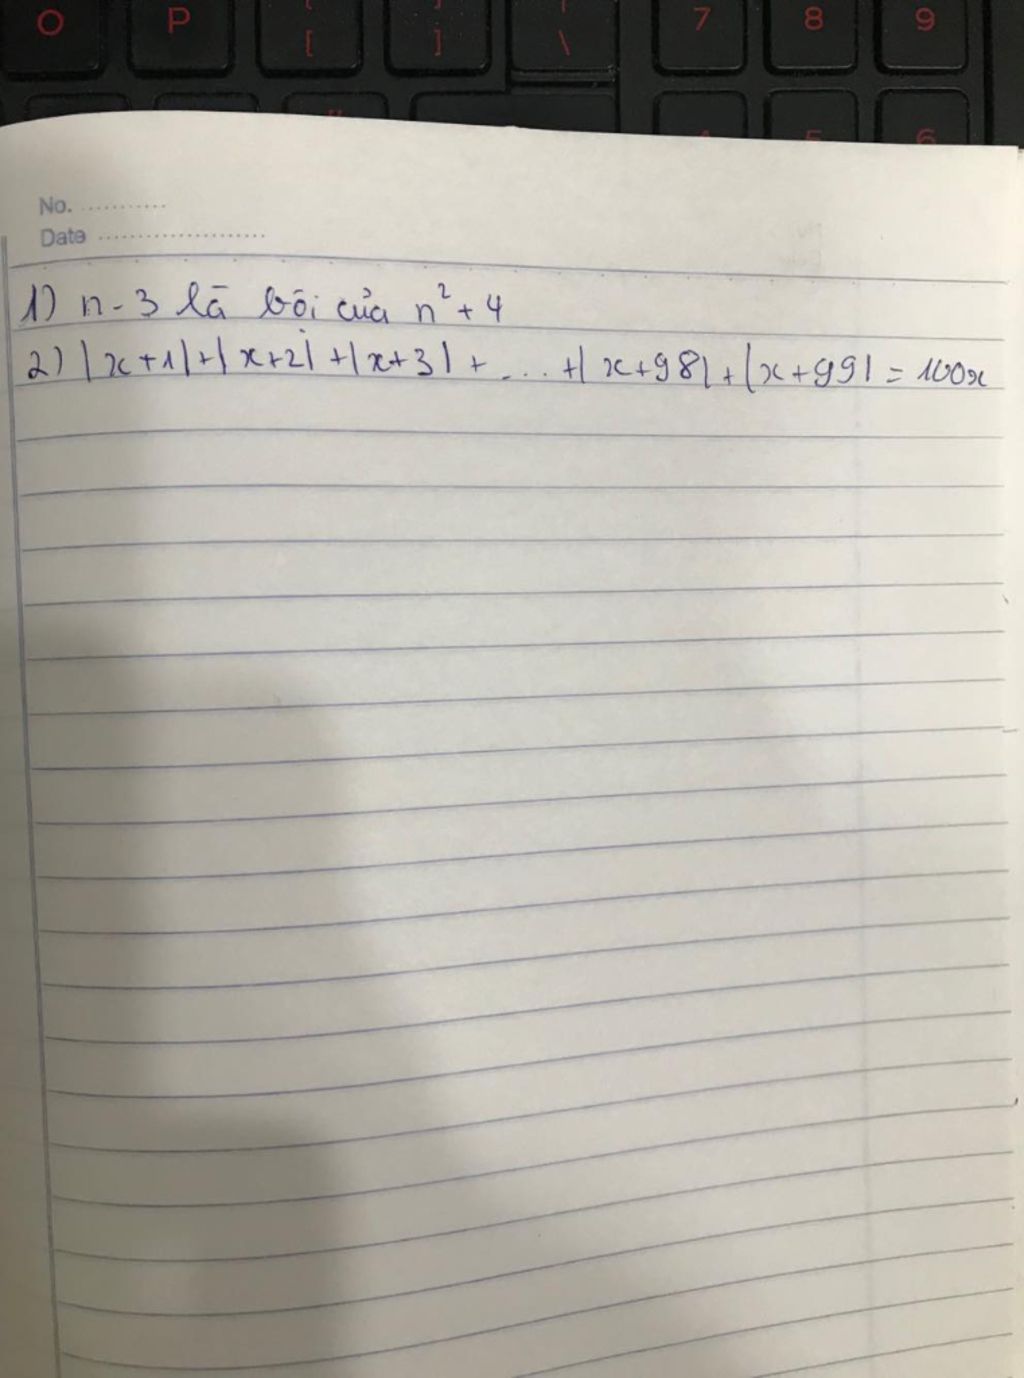 O P [ ] \ 7 8 9
" 4 5 6
No. ...........
Date ......................
1) n - 3 là bội của n² + 4
2) |x+1|+|x+2|+|x+3|+ ... +|x+98|+|x+99| = 100x